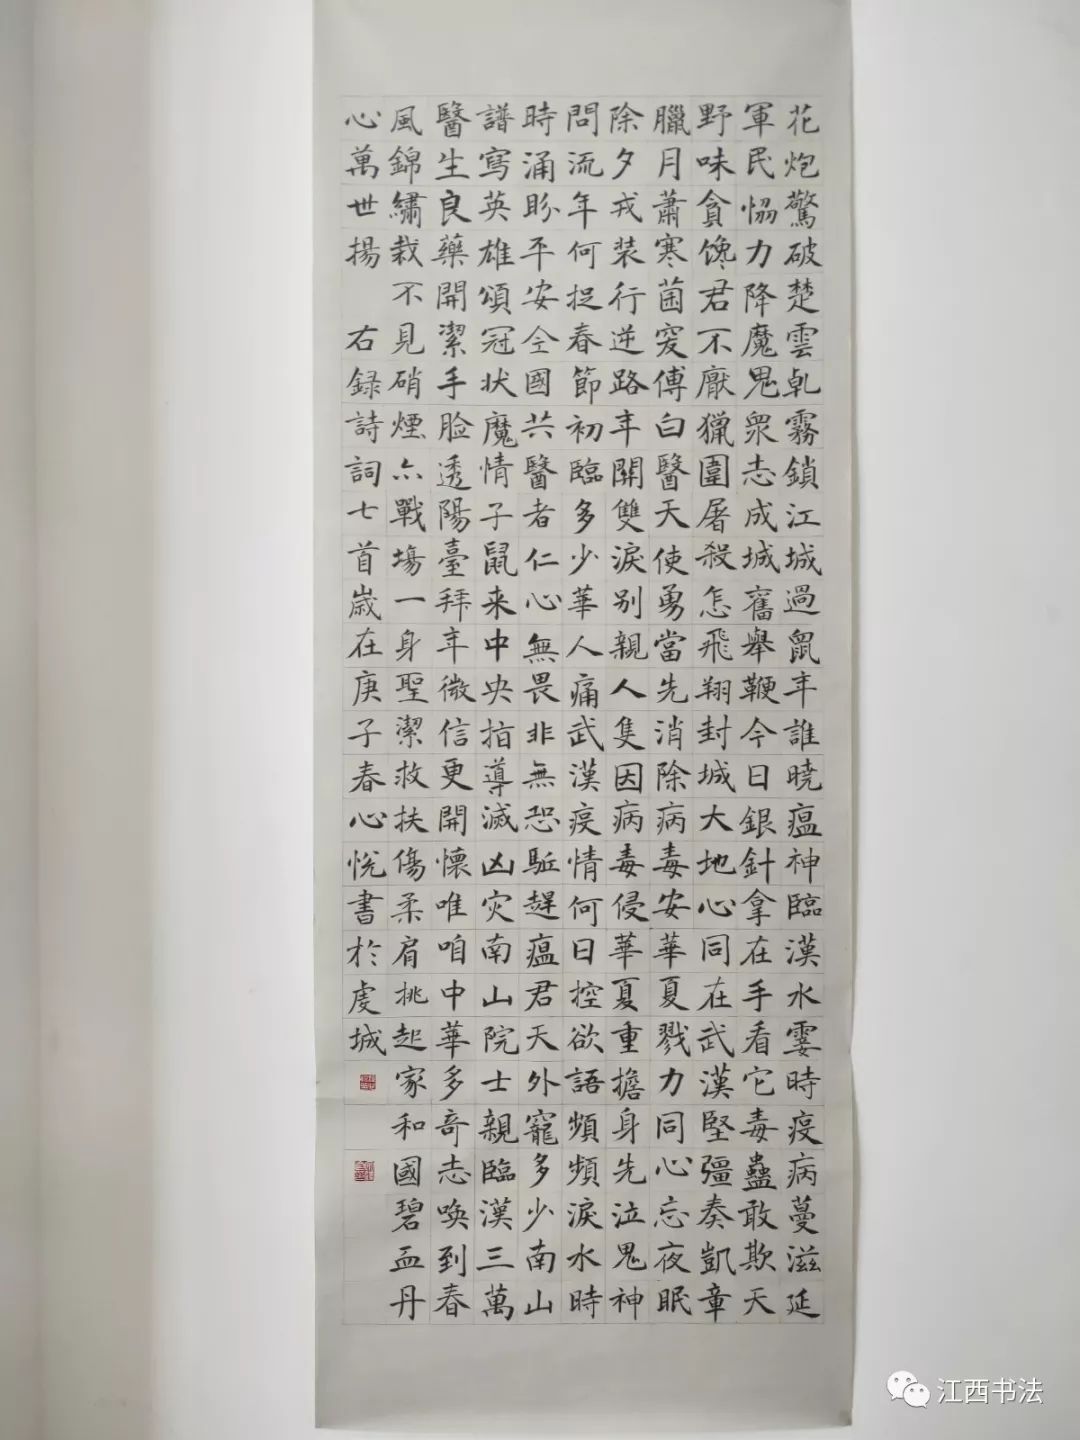 花炮驚破楚雲乹霧鎖江城過鼠年誰曉瘟神臨漢水霎時疫病蔓滋延
軍民恊力降魔鬼衆志成城舊舉鞭今日銀針拿在手看它毒蠱敢欺天
野味貪馋君不厭獵圍屠殺怎飛翔封城大地心同在武漢堅彊奏凱章
臘月蕭寒菌突傅白醫天使勇當先消除病毒安華夏戮力同心忘夜眠
除夕戎装行逆路年關雙淚别親人隻因病毒侵華夏重擔身先泣鬼神
問流年何捉春節初臨多少華人痛武漢疫情何日控欲語頻頻淚水時
時涌盼平安全國共醫者仁心無畏非無恐駈趕瘟君天外寵多少南山
譜寫英雄頌冠状魔情子鼠来中央指導滅凶灾南山院士親臨漢三萬
醫生良藥開潔手脸透陽臺拜年微信更開懷唯咱中華多奇志喚到春
風錦繡栽不見硝煙亦戰場一身聖潔救扶傷柔肩挑起家和國碧血丹
心萬世揚 右録詩詞七首嵗在庚子春心悦書於虔城
江西书法